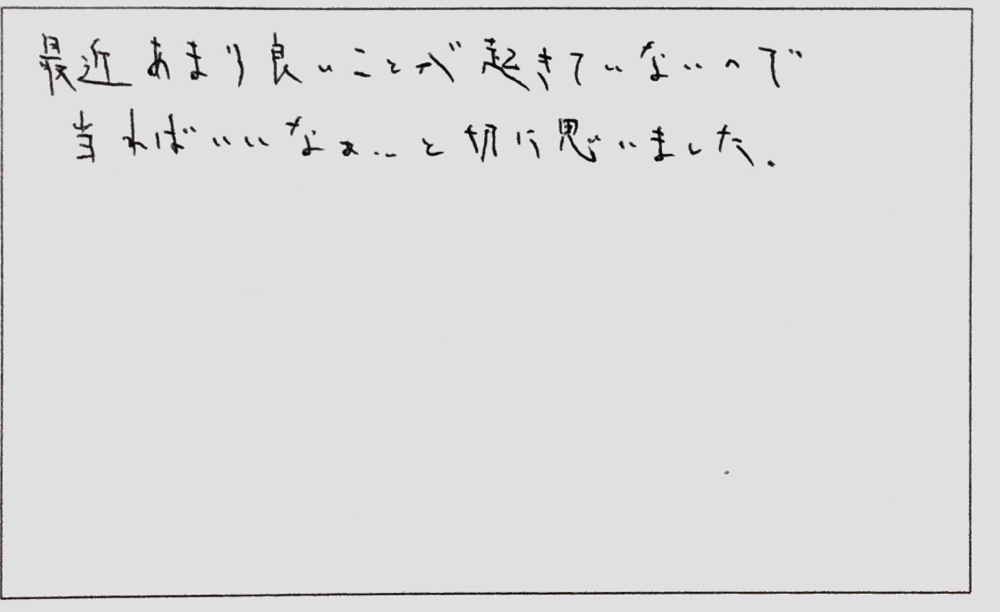 最近あまり良いことが起きていないので
当ればいいなぁ…と切に思いました.